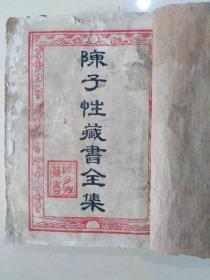 陳子性藏書全集